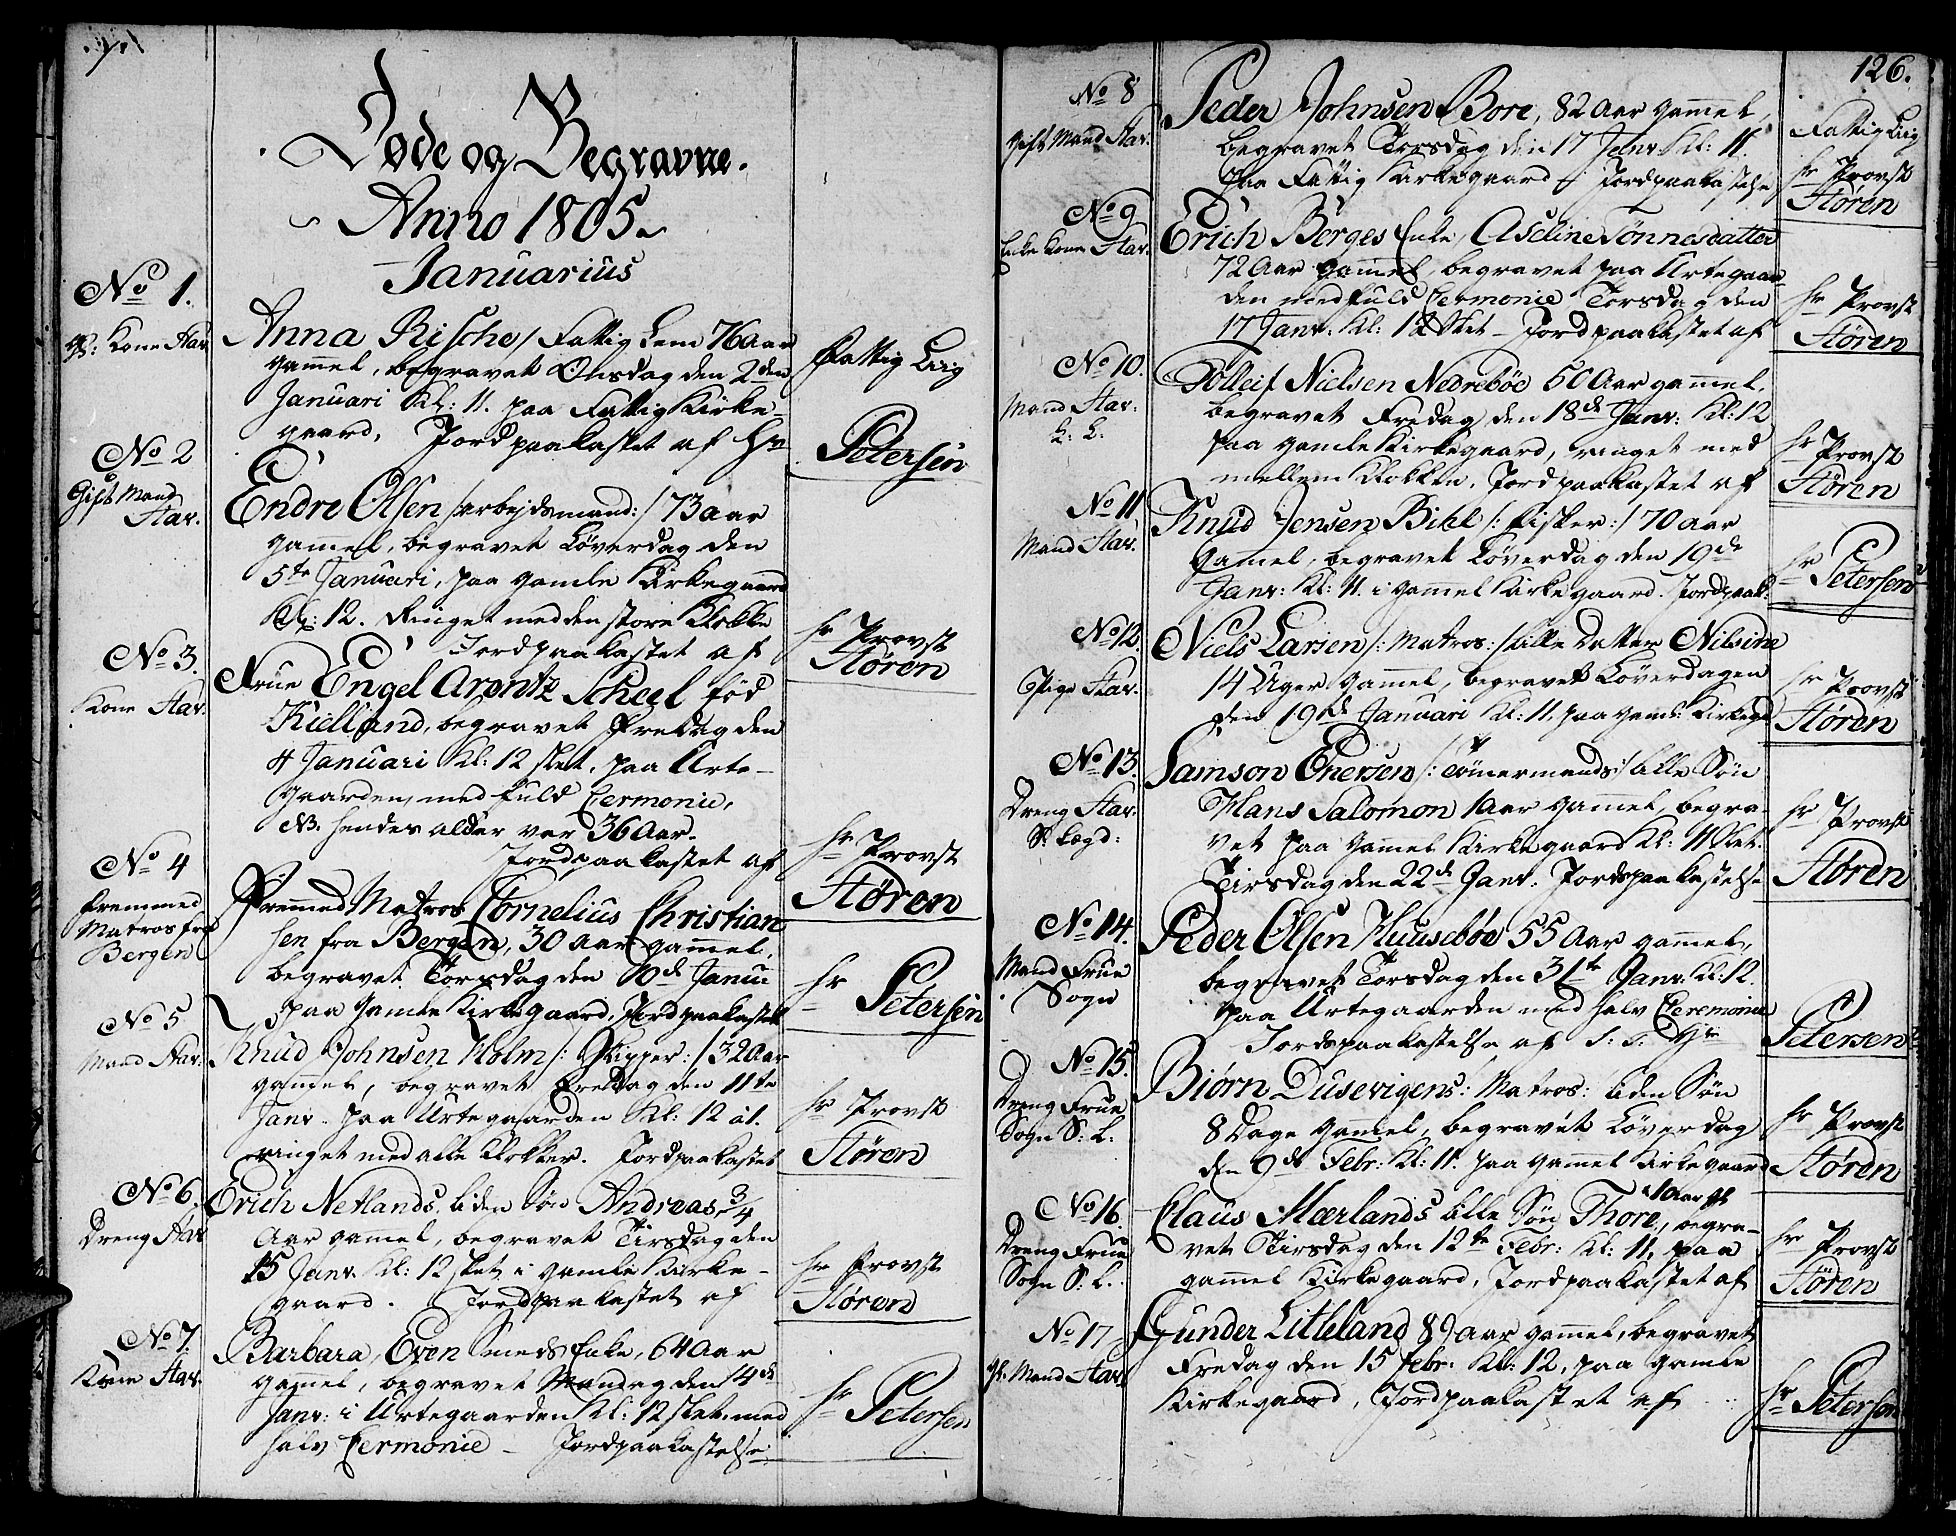 Døde og Begravne.
Anno 1805.
Januarius
No 1.
gl: Kone Stav.
Anna Rische / Fattig Lem 76 Aar
gammel, begravet Onsdag den 2den
Januari Kl: 11. paa Fattig Kirke-
gaard, Jordpaakastet af Hr
Fattig Liig
Petersen
No 2
Gift Mand
Stav.
Endre Olsen /: arbejdsmand :/ 73 aar
gammel, begravet Løverdag den
5te Januari, paa gamle Kirkegaard
Kl: 12. Ringet med den store Klokke
Jordpaakastet af
hr Provst
Støren
No 3.
Kone Stav.
Frue Engel Arentz Scheel fød
Kielland, begravet Fredag den
4 Januari Kl: 12 slet, paa Urte-
gaarden, med fuld Cermonie,
NB. hendes alder var 36 Aar.
Jordpaakastet af
hr Provst
Støren
No 4
fremmed
Matros fra
Bergen
Fremmed Matros Cornelius Christian
sen fra Bergen, 30 aar gammel,
begravet Torsdag den 10de Janu
paa gamle Kirkegaard, Jordpaakastet
hr Petersen
No 5
Mand Stav.
Knud Johnsen Holm /: Skipper :/ 32 Aar
gammel, begravet Fredag den 11te
Janv. paa Urtegaarden Kl: 12 à 1.
ringet med alle Klokker. Jordpaakastet
hr Provst
Støren
No 6.
Dreng Stav
Erich Netlands liden Søn Andreas, 3/4
Aar gammel, begravet Tirsdag den
15 Janv. Kl: 12 slet, i gamle Kirke-
gaard. Jordpaakastet af
hr Provst
Støren
No 7.
Kone Stav.
Barbara, Even Smeds Enke, 64 Aar
gammel, begravet Mandag den 14de
Janv: i Urtegaarden Kl: 12 slet, med
halv Cermonie - Jordpaakastelse
hr Petersen
126.
No 8
Gift Mand Stav.
Peder Johnsen Bore, 82 Aar gammel,
begravet Torsdag den 17 Janv Kl: 11.
paa Fattig Kirkegaard Jordpaakastelse
Fattig Liig
hr Provst
Støren
No 9
Enke Kone Stav.
Erich Berges Enke, Aseline Tønnesdatter
72 Aar gammel, begravet paa Urtegaar
den med fuld Cermonie Torsdag den
17 Janv: Kl: 12 slet - Jordpaakastet af
hr Provst
Støren
No 10.
Mand Stav.
L: L.
Tolleif Nielsen Nedrebøe 50 Aar gammel,
begravet Fredag den 18de Janv: Kl: 12
paa gamle Kirkegaard, ringet med
mellem Klokken, Jordpaakastet af
hr Provst
Støren
No 11
Mand Stav.
Knud Jensen Bihl /: Fisker :/ 70 aar
gammel, begravet Løverdag den 19de
Janv: Kl: 11. i gammel Kirkegaard. Jordpaak:
hr Petersen
No 12.
Pige Stav.
Niels Larsen /: Matros :/ lille Datter Nilsine
14 Uger gammel, begravet Løverdagen
den 19de Januari Kl: 11, paa gaml: Kirkeg
hr Provst
Støren
No 13.
Dreng Stav.
S: Lægd:
Samson Enersen /: Tømermands :/ lille Søn
Hans Salomon 1 Aar gammel, begra-
vet paa gammel Kirkegaard Kl: 11 slet.
Tirsdag den 22de Janv. Jordpaakastelse
hr Provst
Støren
No 14.
Mand Frue
Sogn
Peder Olsen Huusebøe 55 Aar gammel,
begravet Torsdag den 31te Janv. Kl: 12.
paa Urtegaarden med halv Ceremonie
Jordpaakastelse af S: T. Hr
Petersen
No 15.
Dreng Frue
Sogn S: L.
Biørn Dusevigens: Matros: liden Søn
8 Dage gammel, begravet Løverdag
den 9de Febr: Kl: 11. paa gammel Kirkegaard
hr Provst
Støren
No 16.
Dreng Frue
Sogn S: L.
1 Aar gl
Claus Mærlands lille Søn Thore, begra-
vet Tirsdag den 12te Febr: Kl: 11, paa
gammel Kirkegaard, Jordpaakastet af
hr Provst
Støren
No 17
gl. Mand Stav.
Gunder Litleland 89 aar gammel, begravet
Fredag den 15 Febr: Kl: 12, paa gamle
Kirkegaard, Jordpaakastet af
hr Petersen